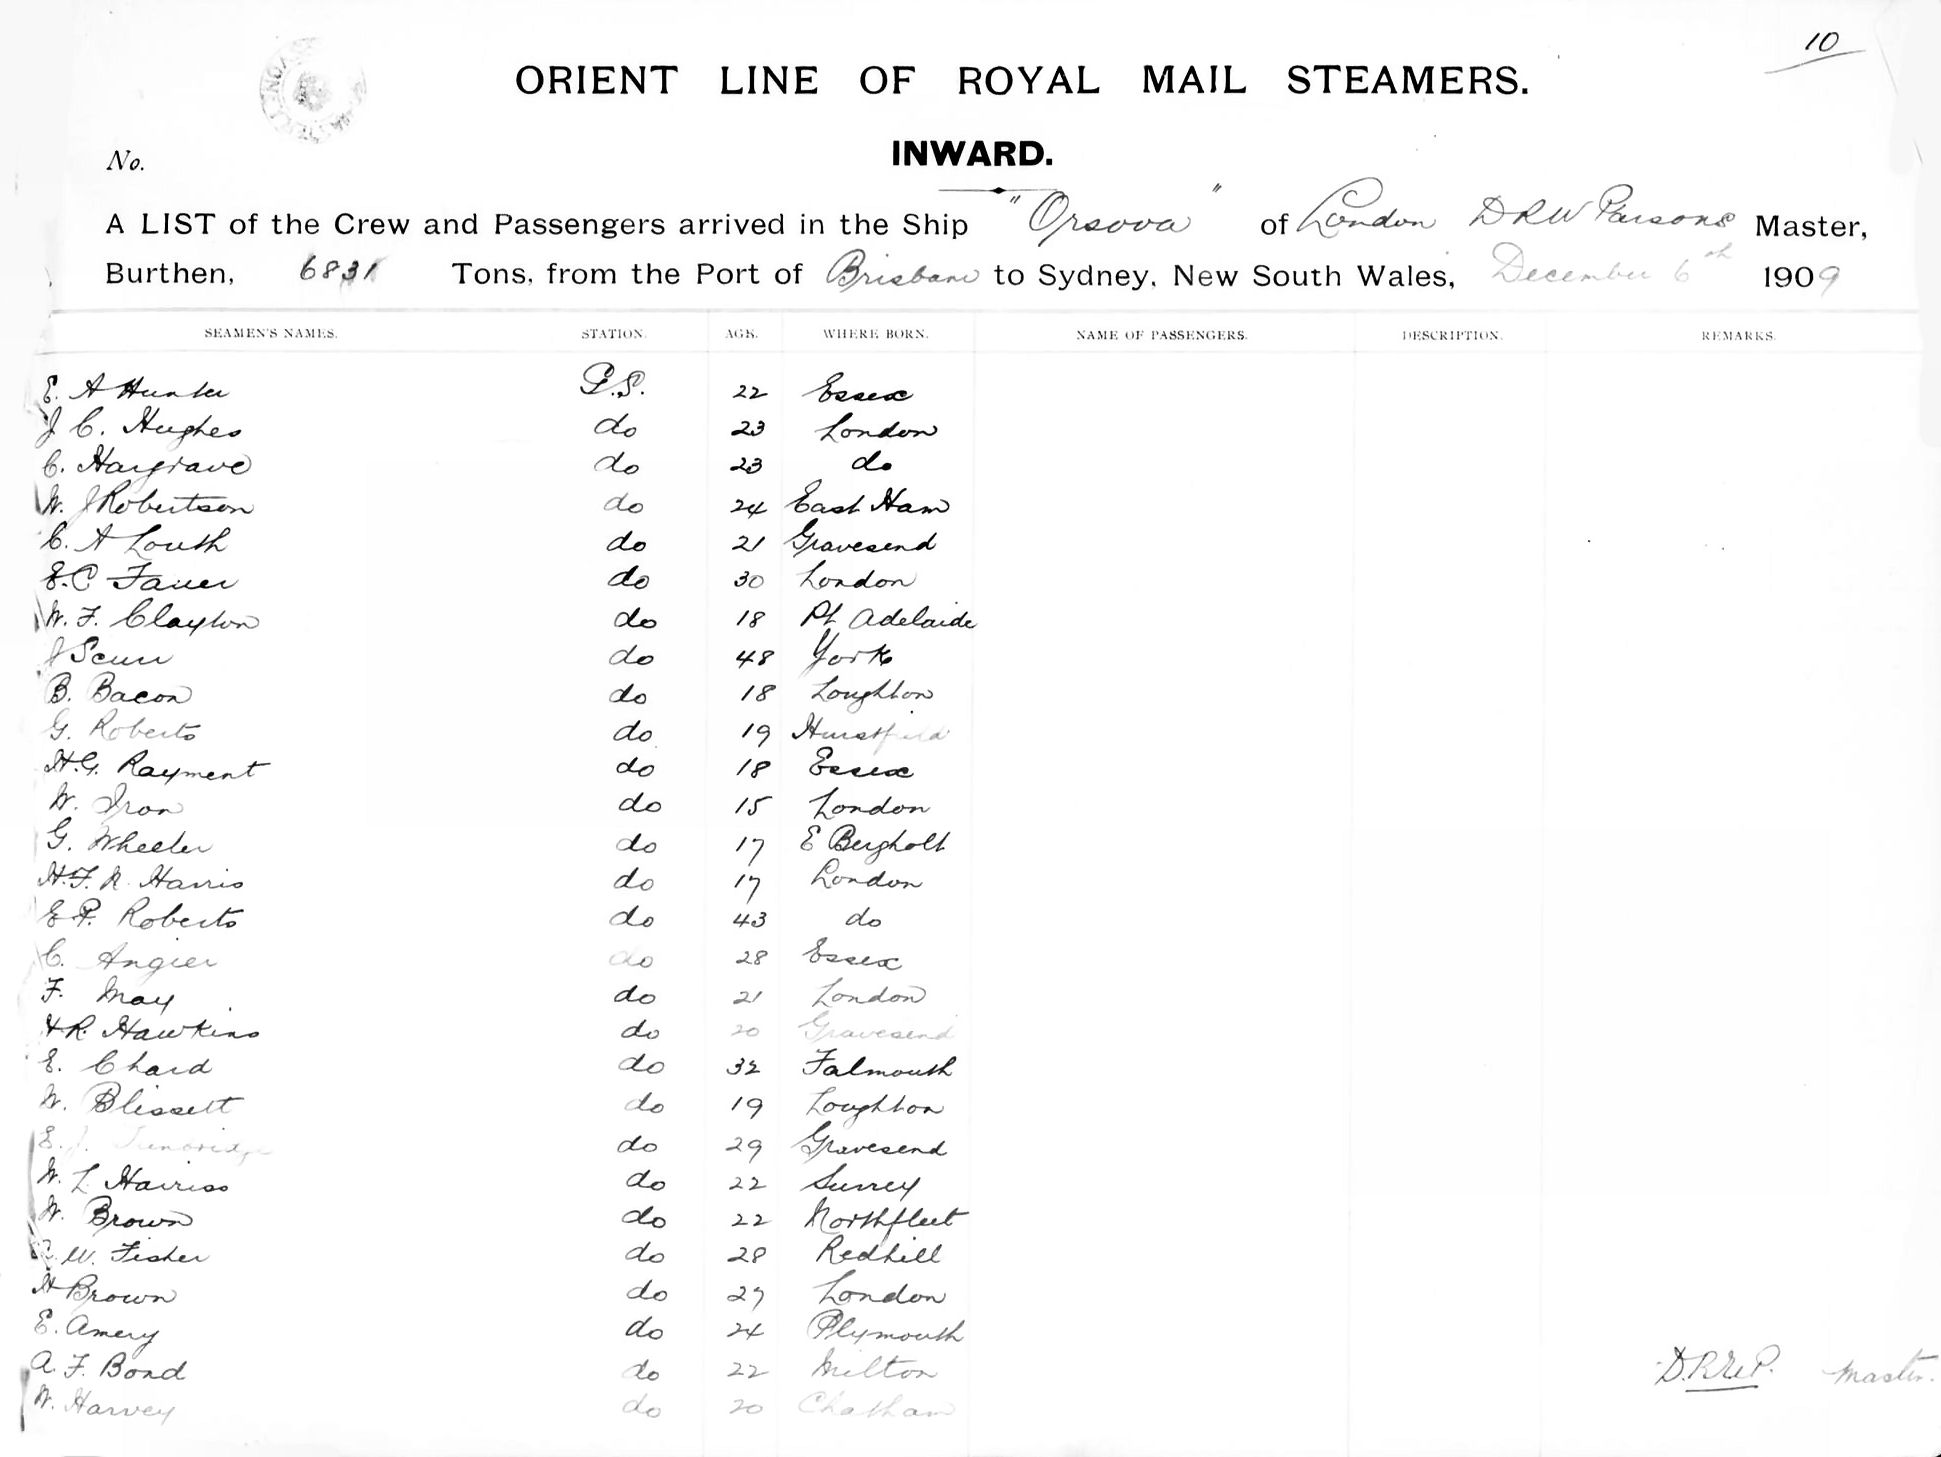 10
ORIENT LINE OF ROYAL MAIL STEAMERS.
INWARD.
No.
A LIST of the Crew and Passengers arrived in the Ship "Orsova" of London D R W Parsons Master,
Burthen, 6831 Tons, from the Port of Brisbane to Sydney, New South Wales, December 6th 1909
SEAMEN'S NAMES. STATION. AGE. WHERE BORN. NAME OF PASSENGERS. DESCRIPTION. REMARKS.
E. A Hunter G.S. 22 Essex
J C. Hughes do 23 London
C. Hargrave do 23 do
W. J Robertson do 24 East Ham
C. A Louth do 21 Gravesend
E.C do 30 London
W. F. Clayton do 18 Pt Adelaide
J Scurr do 48 York
B. Bacon do 18 Loughton
G. Roberts do 19
H.G. Rayment do 18 Essex
W. Iron do 15 London
G. Wheeler do 17 E Bergholt
H.F. N. Harris do 17 London
E P. Roberts do 43 do
C. Angier do 28 Essex
F. May do 21 London
H R. Hawkins do 20 Gravesend
E. Chard do 32 Falmouth
W. Blissett do 19 Loughton
E. J. do 29 Gravesend
W. L Harriss do 22 Surrey
W. Brown do 22 Northfleet
W. Fisher do 28 Redhill
H Brown do 27 London
E. Amery do 24 Plymouth
A. F. Bond do 22 Milton
W. Harvey do 20 Chatham
D.R.W.P. Master.